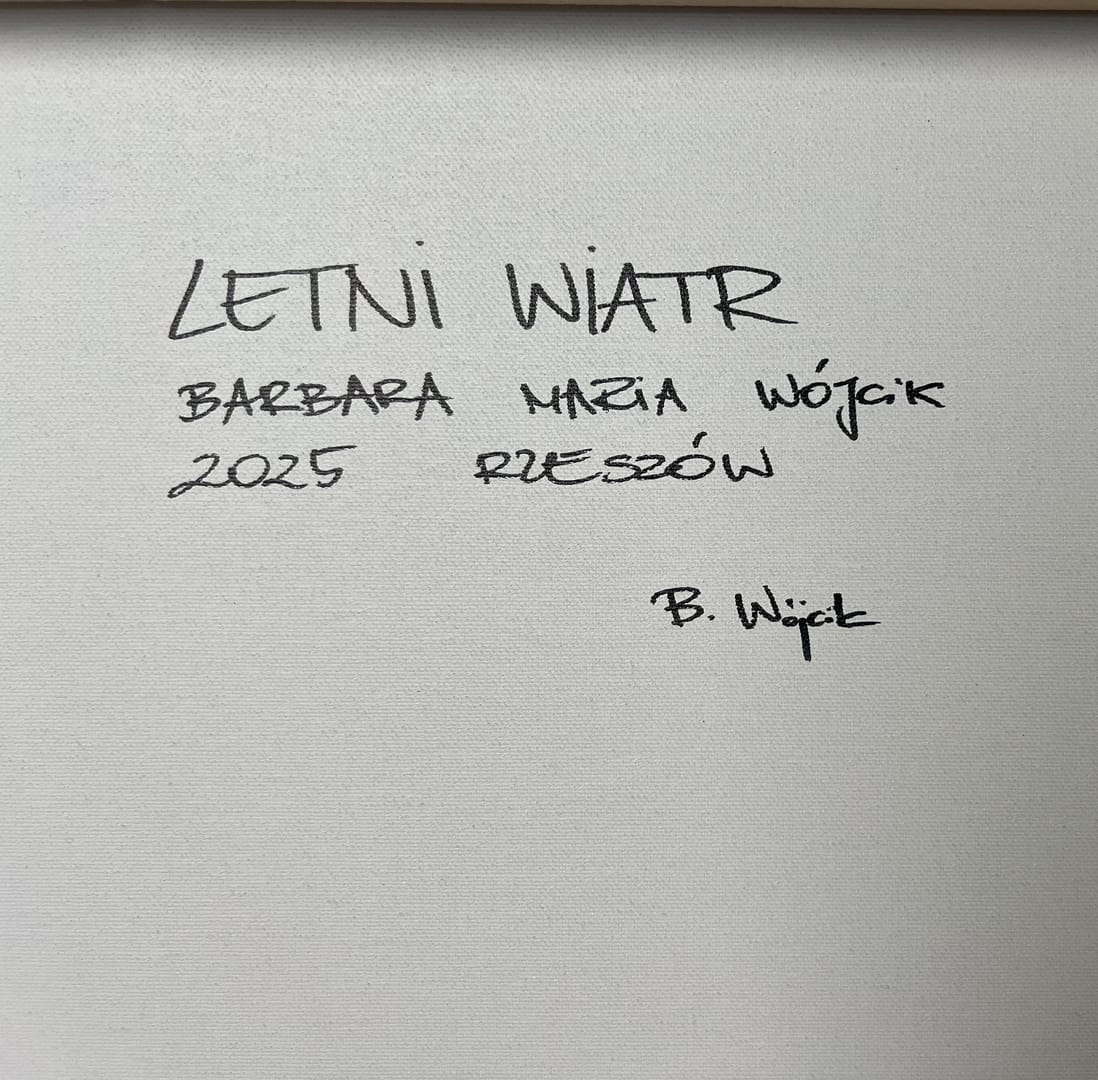 LETNI WIATR
BARBARA MARIA WÓJCIK
2025 RZESZÓW
B. Wójcik